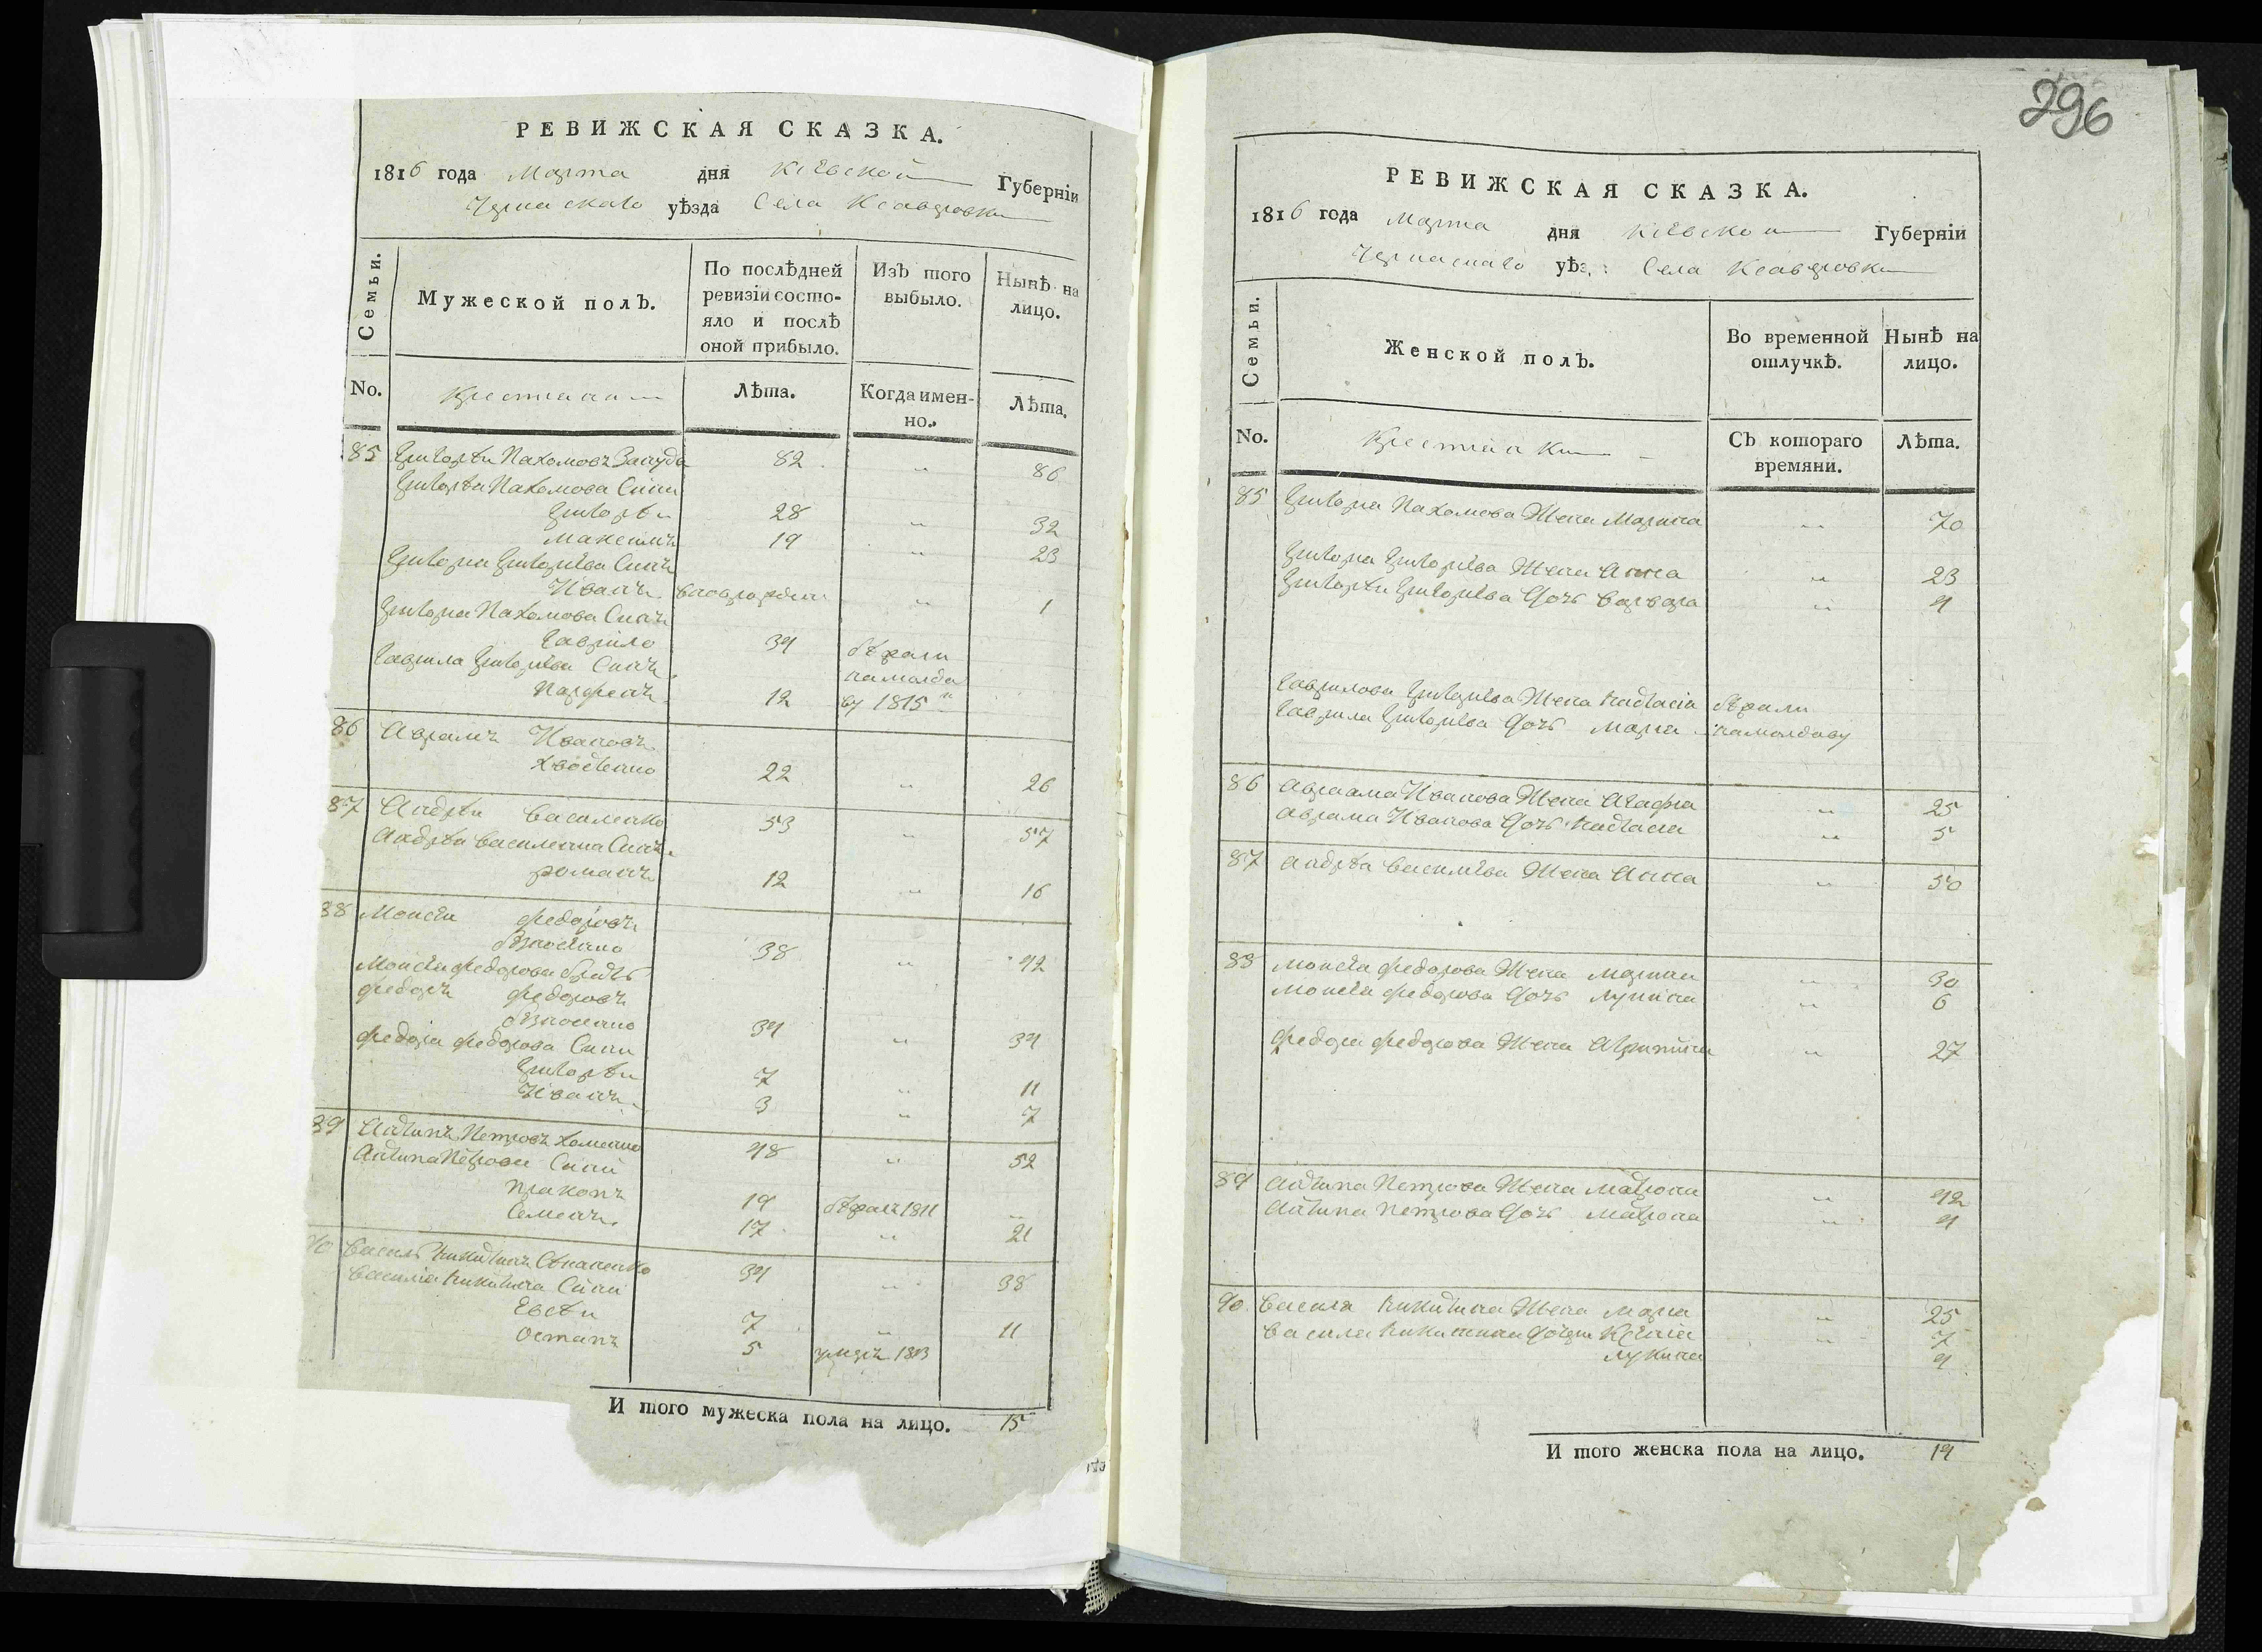 РЕВИЖСКАЯ СКАЗКА.
1816 года Марта дня Кіевской Губерніи
уѣзда Села Ксаверовки
Семьи.
Мужеской полъ.
По послѣдней ревизіи состо-
яло и послѣ
оной прибыло.
Изъ того
выбыло.
Нынѣ на
лицо.
No.
Крестияни
Лѣта.
Когда имен-
но.
Лѣта.
85 Григорѣй Пахомовъ 82 „ 86
Григорѣя Пахомова Сыны
Григорѣй 28 „ 32
Максимъ 19 „ 23
Григория Григориева Сынъ
Иванъ новорожден „ 1
Григория Пахомова Сынъ
Гаврило 34 бѣжали
Гаврила Григориева Сынъ
Парфенъ 12 1815
86 Аврамъ Ивановъ
22 „ 26
87 Андрѣй Василенко 53 „ 57
Андрѣя Василенка Сынъ
Романъ 12 „ 16
88 Моисей Федоровъ
38 „ 42
Моисея Федорова братъ
Федоръ Федоровъ
34 „ 34
Федора Федорова Сыны
Григорѣй 7 „ 11
Иванъ 3 „ 7
89 Антипъ Петровъ Хоменко 48 „ 52
Антипа Петрова Сыны
Прокопъ 19 бѣжалъ 1811 „
Семенъ 17 „ 21
90 Василь Никитинъ 34 „ 38
Василия Никитина Сыны
Евсѣй 7 „ 11
Остапъ 5 умеръ 1813
И того мужеска пола на лицо. 15
296
РЕВИЖСКАЯ СКАЗКА.
1816 года Марта дня Кіевской Губерніи
уѣз. Села Ксаверовки
Семьи.
Женской полъ.
Во временной
отлучкѣ.
Нынѣ на
лицо.
No.
Крестиянки
Съ котораго
времяни.
Лѣта.
85 Григория Пахомова Жена Марина „ 70
Григория Григориева Жена Анна „ 23
Григорѣя Григориева дочь Варвара „ 4
Гаврилова Григориева Жена Настасия бѣжали
Гаврила Григориева дочь Мария
86 Авраама Иванова Жена Агафия „ 25
Аврама Иванова дочь Настасия „ 5
87 Андрѣя Василиева Жена Анна „ 50
88 Моисея Федорова Жена Марина „ 30
Моисея Федорова дочь „ 6
Федора Федорова Жена Агрипина „ 27
89 Антипа Петрова Жена Матрона „ 42
Антипа Петрова дочь Матрона „ 4
90 Василя Никитина Жена Мария „ 25
Василя Никитина дочери Ксения „ 7
Лукина 4
И того женска пола на лицо. 14